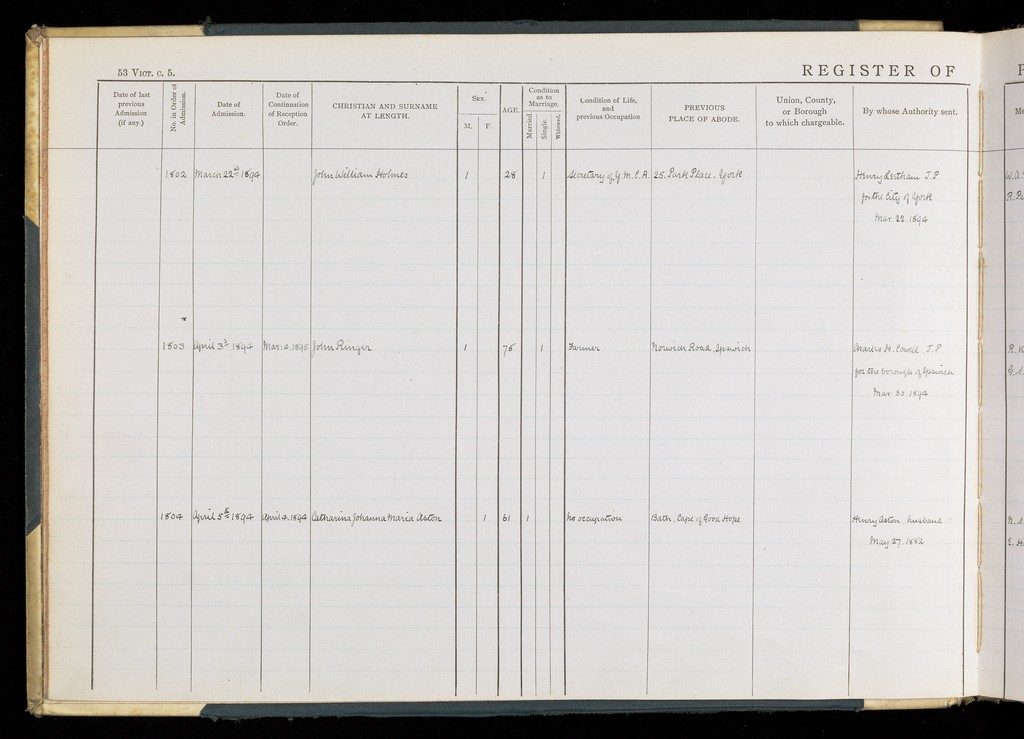 53 VICT. c. 5.
REGISTER OF
Date of last previous Admission (if any.)
No. in Order of Admission.
Date of Admission.
Date of Continuation of Reception Order.
CHRISTIAN AND SURNAME AT LENGTH.
SEX.
M. F.
AGE.
Condition as to Marriage.
Married. Single. Widowed.
Condition of Life, and previous Occupation
PREVIOUS PLACE OF ABODE.
Union, County, or Borough to which chargeable.
By whose Authority sent.
1802 March 22nd 1894 John William Holmes 1 28 1 Secretary of Y.M.C.A. 25. Park Place. York Henry Leetham J.P
for the City of York
Mar. 22. 1894
W.A.
R.
1803 April 3rd 1894 Mar: 4. 1895 John Ringer 1 1 Farmer Norwich Road, Ipswich Charles H. Cowell J.P
for the borough of Ipswich
Mar. 30. 1894
R.
G.
1804 April 5th 1894 April 4. 1894 Catharina Johanna Maria Aston 1 61 1 No occupation Bath, Cape of Good Hope Henry Aston, husband
May 27. 1882